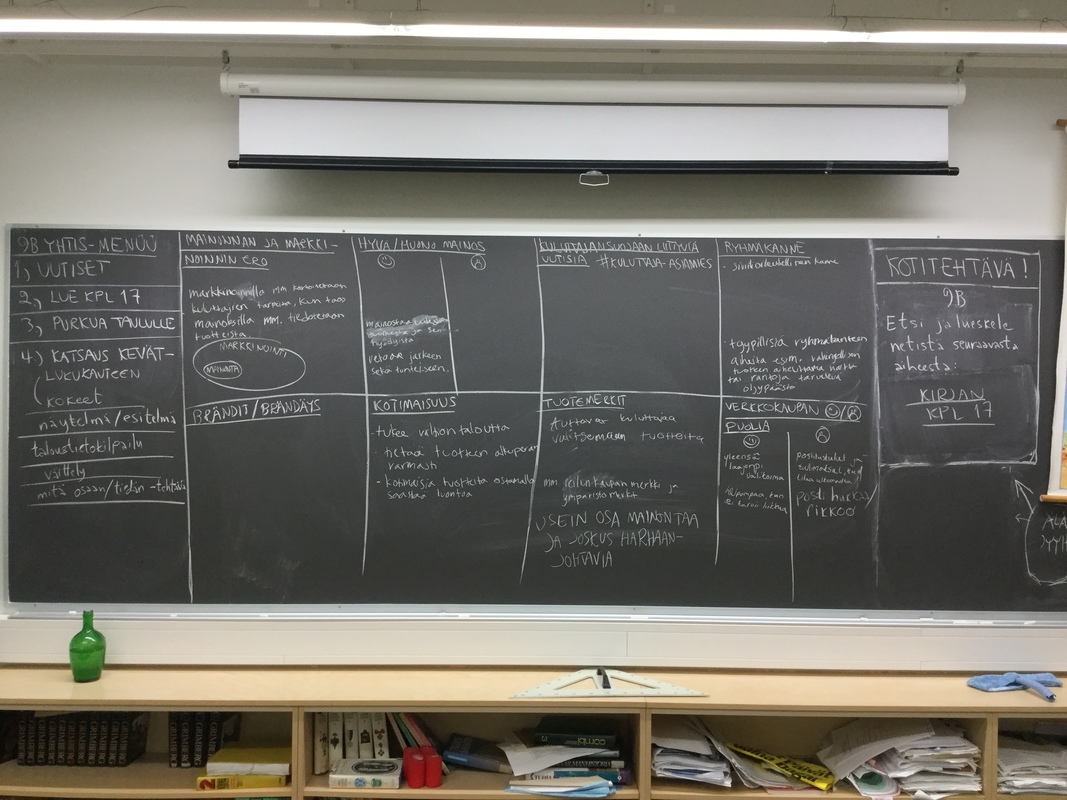 9B YHTIS-MENUU
1, UUTISET
2, LUE KPL 17
3, PURKUA TAULULLE
4.) KATSAUS KEVÄT-
LUKUKAUTEEN
KOKEET
näytelmä/esitelmä
taloustietokilpailu
väittely
mitä osaan/tiedän -tehtävä
MAINONNAN JA MARKKI-
NOINNIN ERO
markkinoinnilla mm. kartoitetaan
kuluttajien tarpeita, kun taas
mainoksilla mm. tiedotetaan
tuotteista
MARKKINOINTI
MAINONTA
BRÄNDIT/BRÄNDÄYS
HYVÄ/HUONO MAINOS
ja sen
hyödyistä
vetoaa järkeen
sekä tunteiseen
KOTIMAISUUS
- tukee valtion taloutta
- tietää tuotteen alkuperän
varmasti
- kotimaisia tuotteita ostamalla
säästää luontoa
KULUTTAJANSUOJAAN LIITTYVIÄ
UUTISIA #KULUTTAJA-ASIAMIES
TUOTEMERKIT
Auttavat kuluttajaa
valitsemaan tuotteita
mm. reilunkaupan merkki ja
ympäristömerkit
USEIN OSA MAINONTAA
JA JOSKUS HARHAAN-
JOHTAVIA
RYHMÄKANNE
- tyypillisiä ryhmäkanteen
aiheita esim. vahingollisen
tuotteen aiheuttama haitta
tai rantoja turmeleva
öljypäästö
VERKKOKAUPAN
PUOLIA
yleensä
laajempi
valikoima
Halpempaa, kun
ei tarvii liikkua
postituskulut ja
posti hukkaa/
rikkoo
KOTITEHTÄVÄ!
9B
Etsi ja lueskele
netistä seuraavasta
aiheesta:
KIRJAN
KPL 17